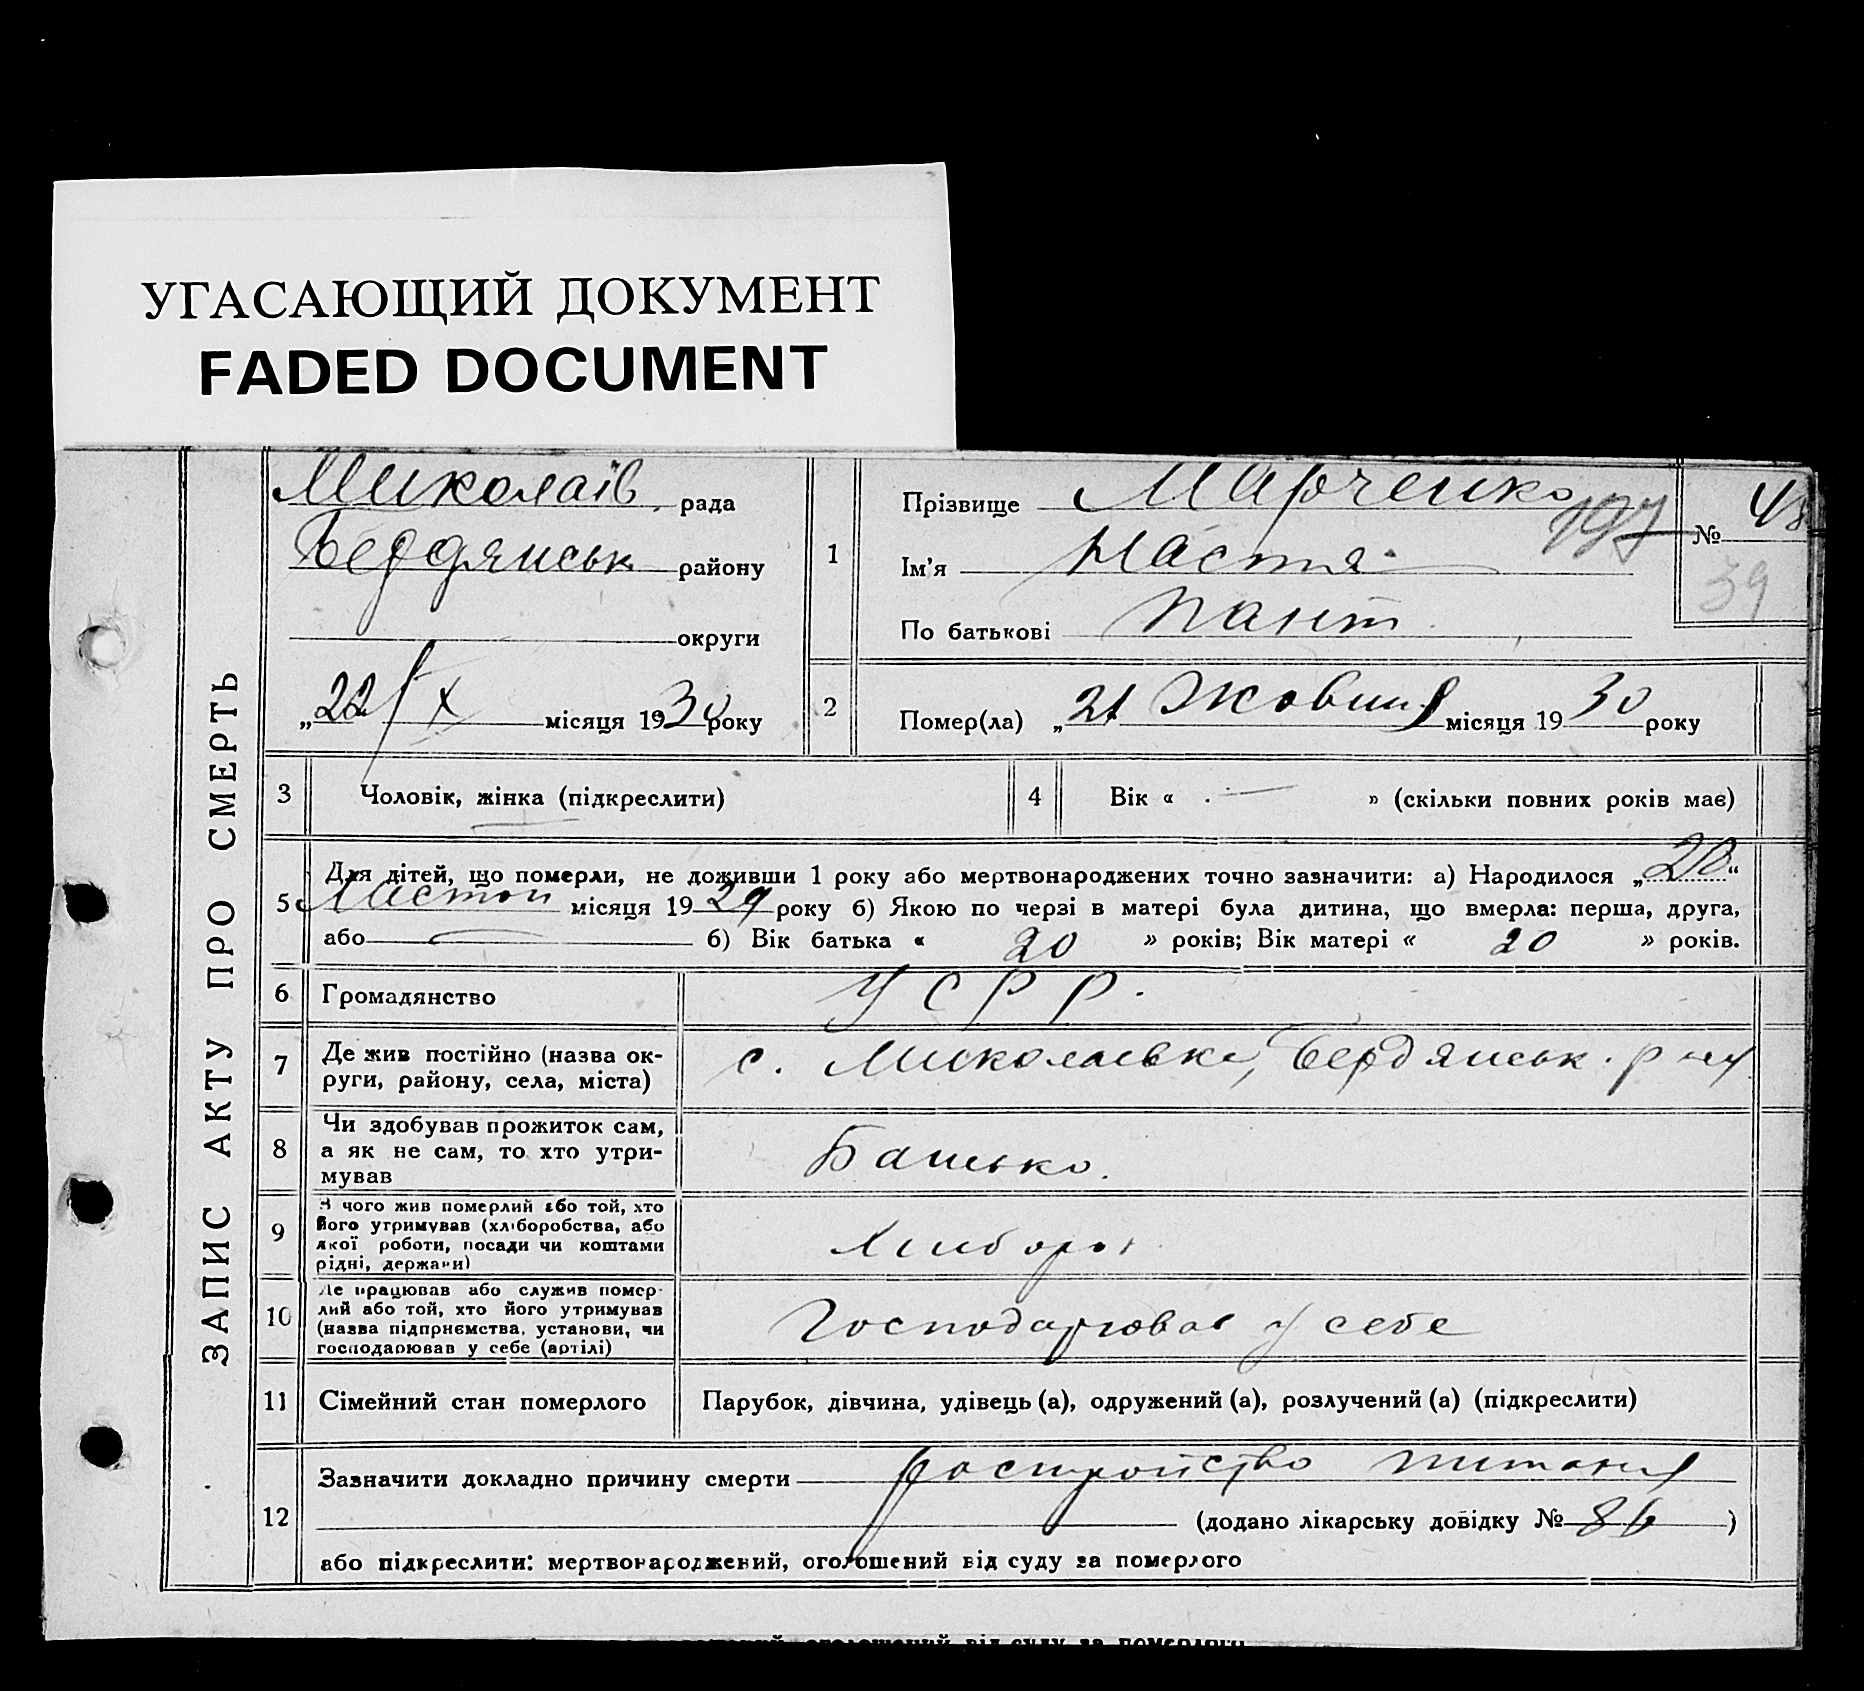 УГАСАЮЩИЙ ДОКУМЕНТ
FADED DOCUMENT
ЗАПИС АКТУ ПРО СМЕРТЬ
Миколаїв. рада
Бердянськ району
округи
„22 X місяця 1930 року
1
Прізвище Марченко
Ім'я Настя
По батькові Пант
197
№ 48
39
2 Помер(ла) „21 Жовтня місяця 1930 року
3 Чоловік, жінка (підкреслити)
4 Вік « — » (скільки повних років має)
5 Для дітей, що померли, не доживши 1 року або мертвонароджених точно зазначити: а) Народилося „20“
Листоп місяця 1929 року б) Якою по черзі в матері була дитина, що вмерла: перша, друга,
або — б) Вік батька « 20 » років; Вік матері « 20 » років.
6 Громадянство УСРР.
7 Де жив постійно (назва ок-
руги, району, села, міста)
с. Миколаевка, Бердянськ. р-ну
8 Чи здобував прожиток сам,
а як не сам, то хто утри-
мував
Батько.
9 З чого жив померлий або той, хто
його утримував (хліборобства, або
якої роботи, посади чи коштами
рідні, держави)
10 Де працював або служив помер-
лий або той, хто його утримував
(назва підприємства, установи, чи
господарював у себе (артілі)
Господарював у себе
11 Сімейний стан померлого Парубок, дівчина, удівець (а), одружений (а), розлучений (а) (підкреслити)
12 Зазначити докладно причину смерти ростройство питания
(додано лікарську довідку № 86 )
або підкреслити: мертвонароджений, оголошений від суду за померлого
оголошений від суду за померлого